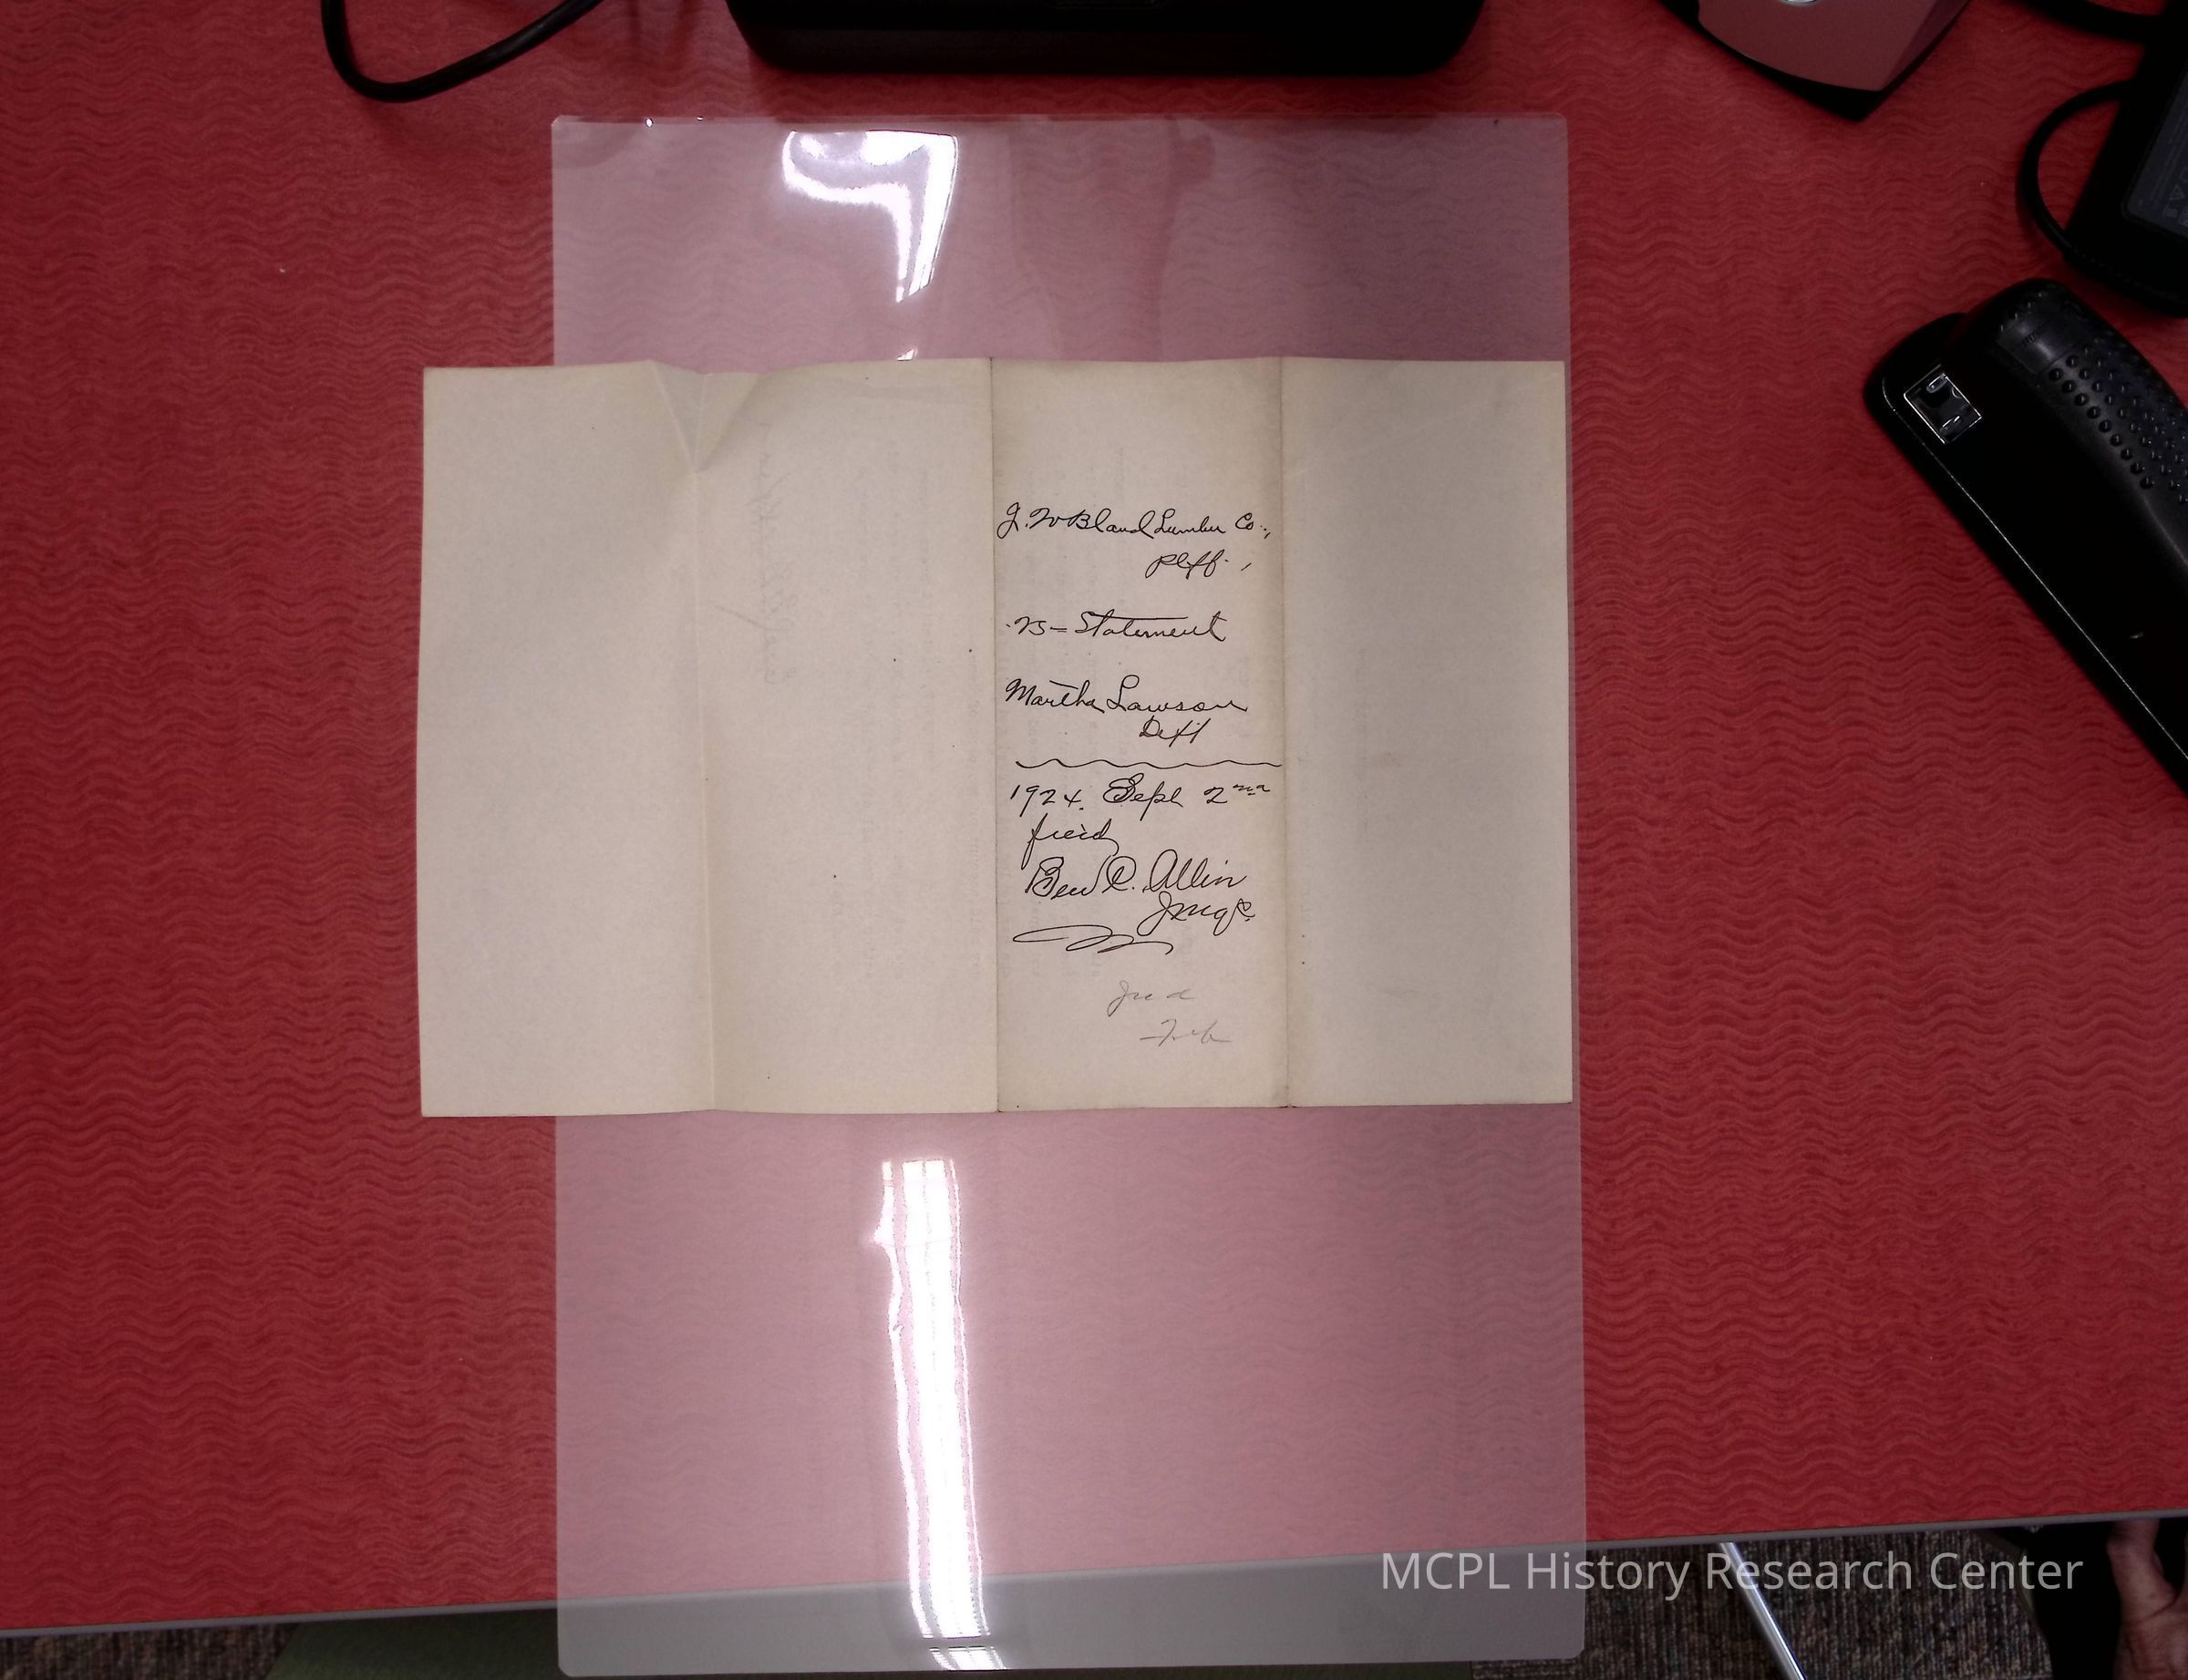 J. W Bland Lumber Co.,
Plff.,
vs = Statement
Martha Lawson
Deft
1924. Sept 2nd
filed
Ben C. Allin
MCPL History Research Center